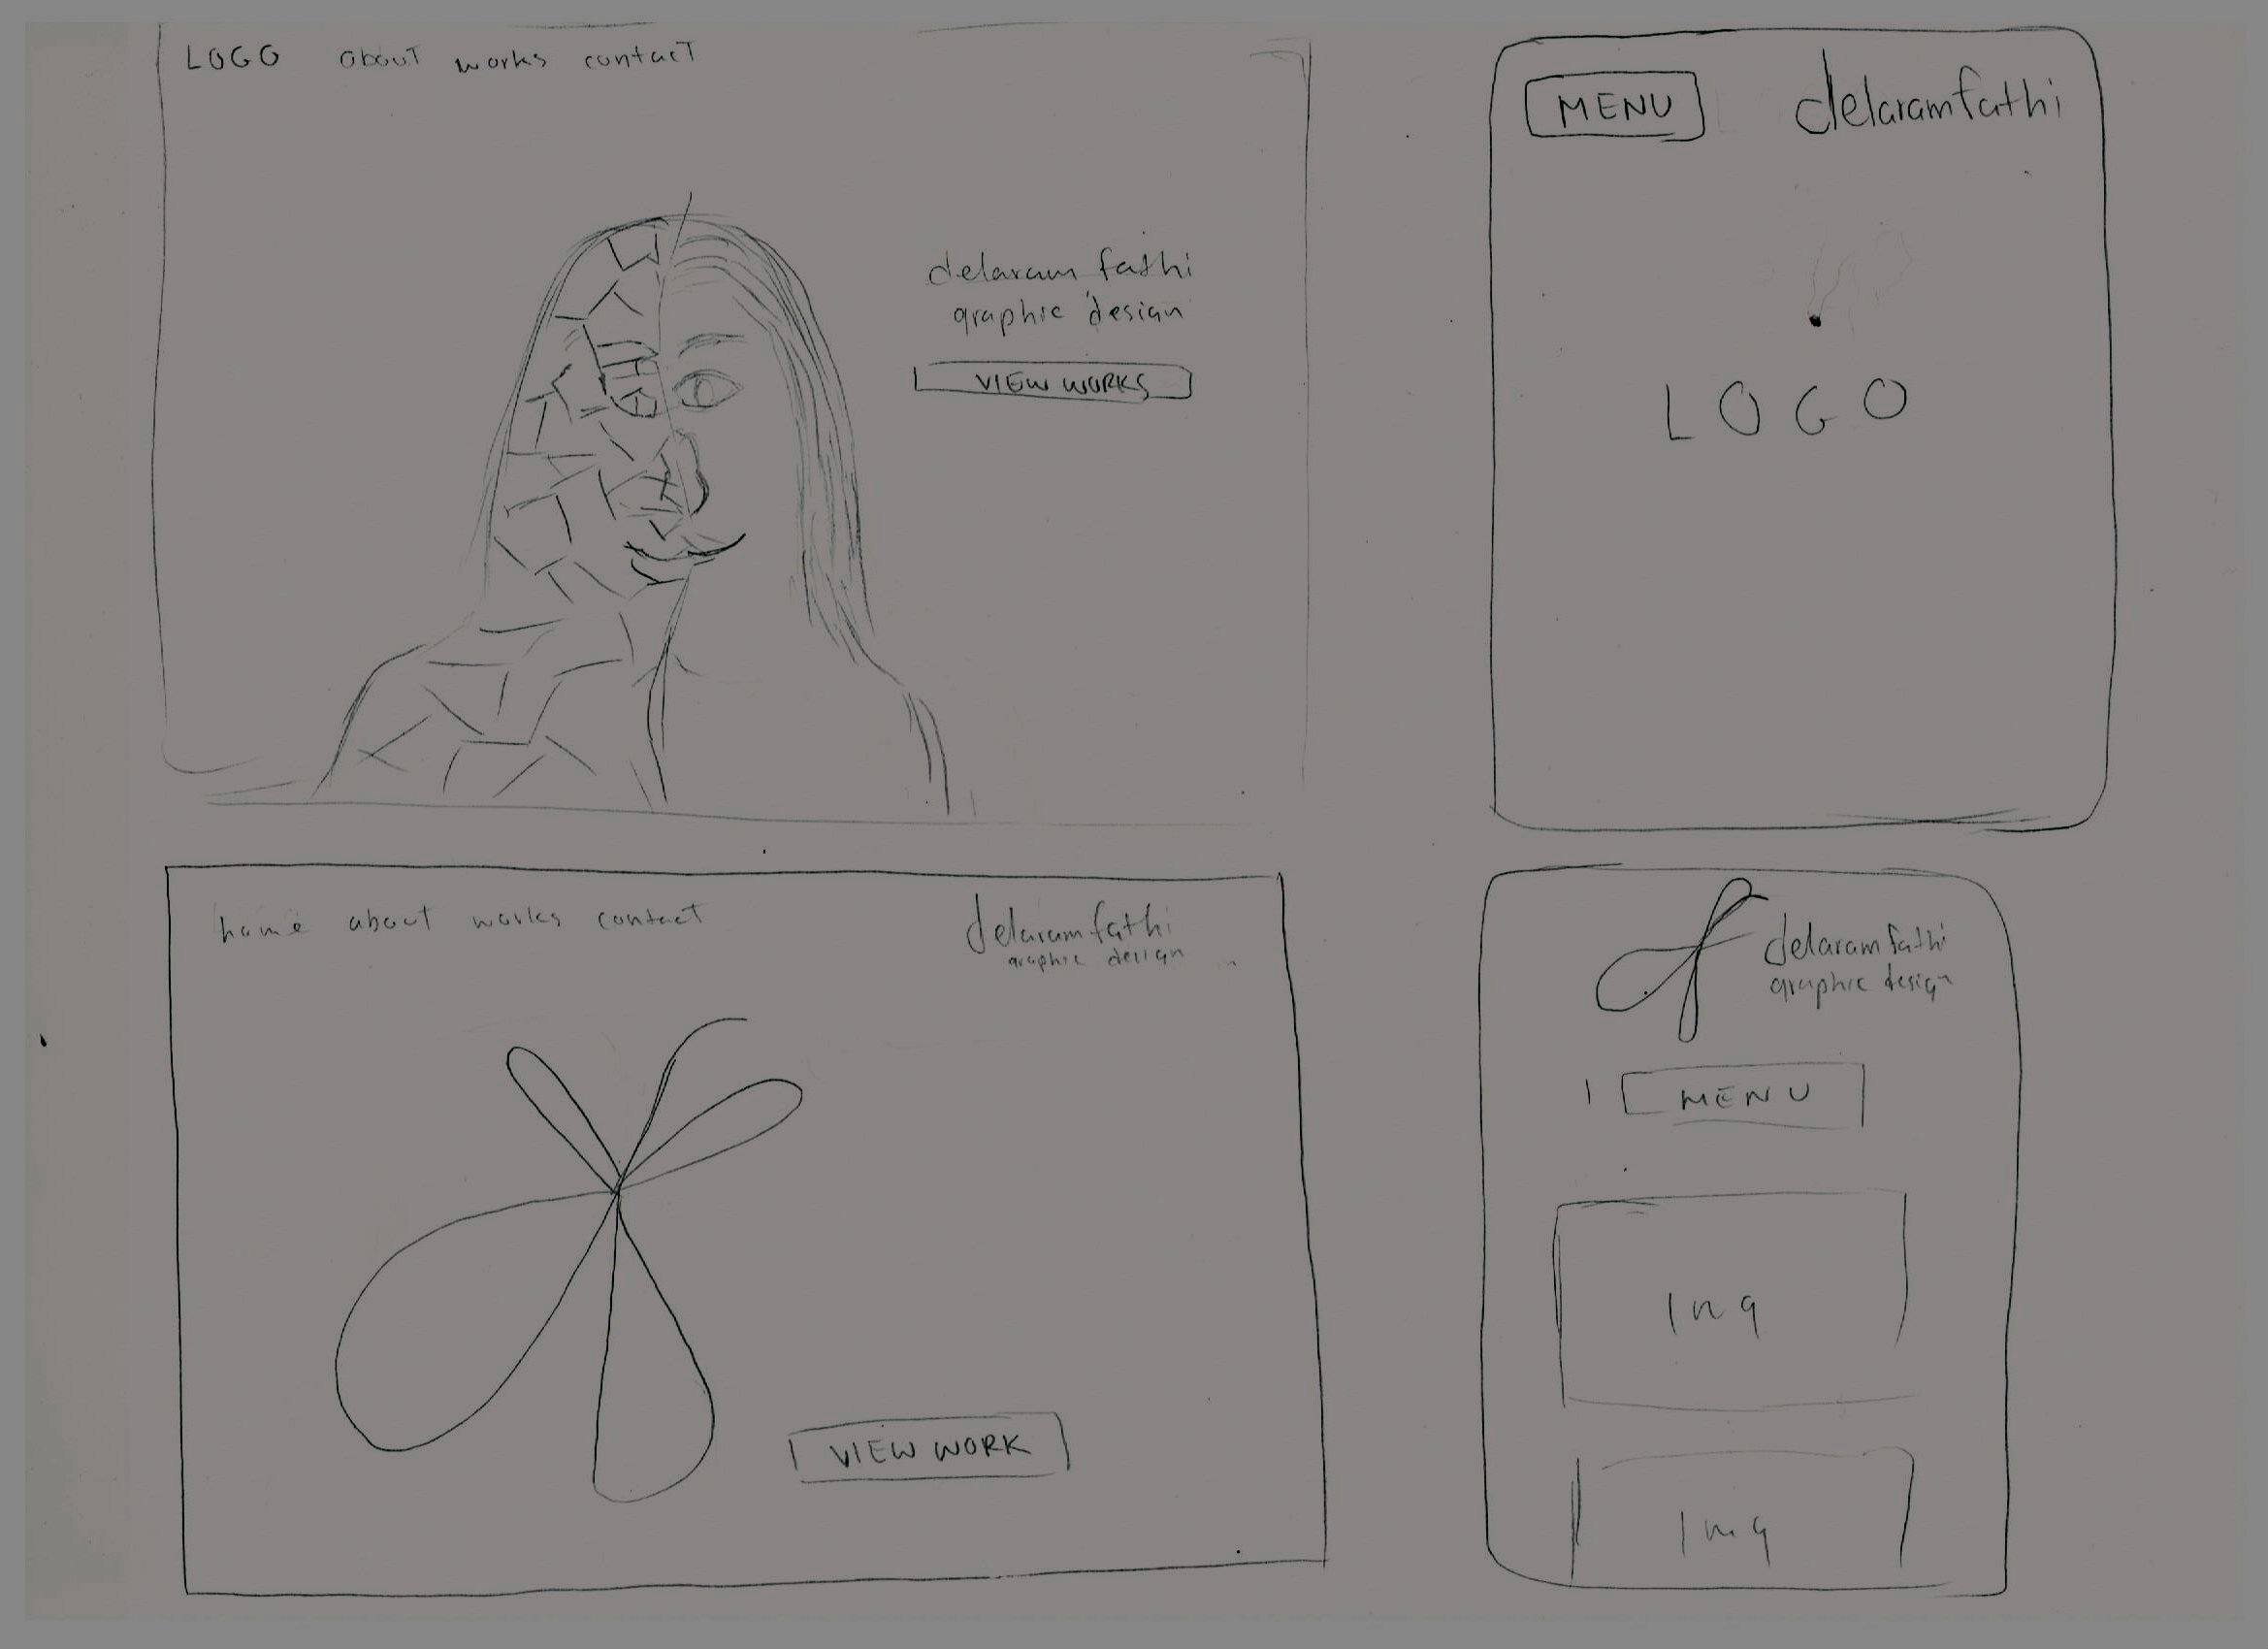 LOGO about works contact
delaram fathi
graphic design
VIEW WORKS
MENU delaramfathi
LOGO
home about works contact
delaramfathi
graphic design
VIEW WORK
delaramfathi
graphic design
MENU
Img
Img